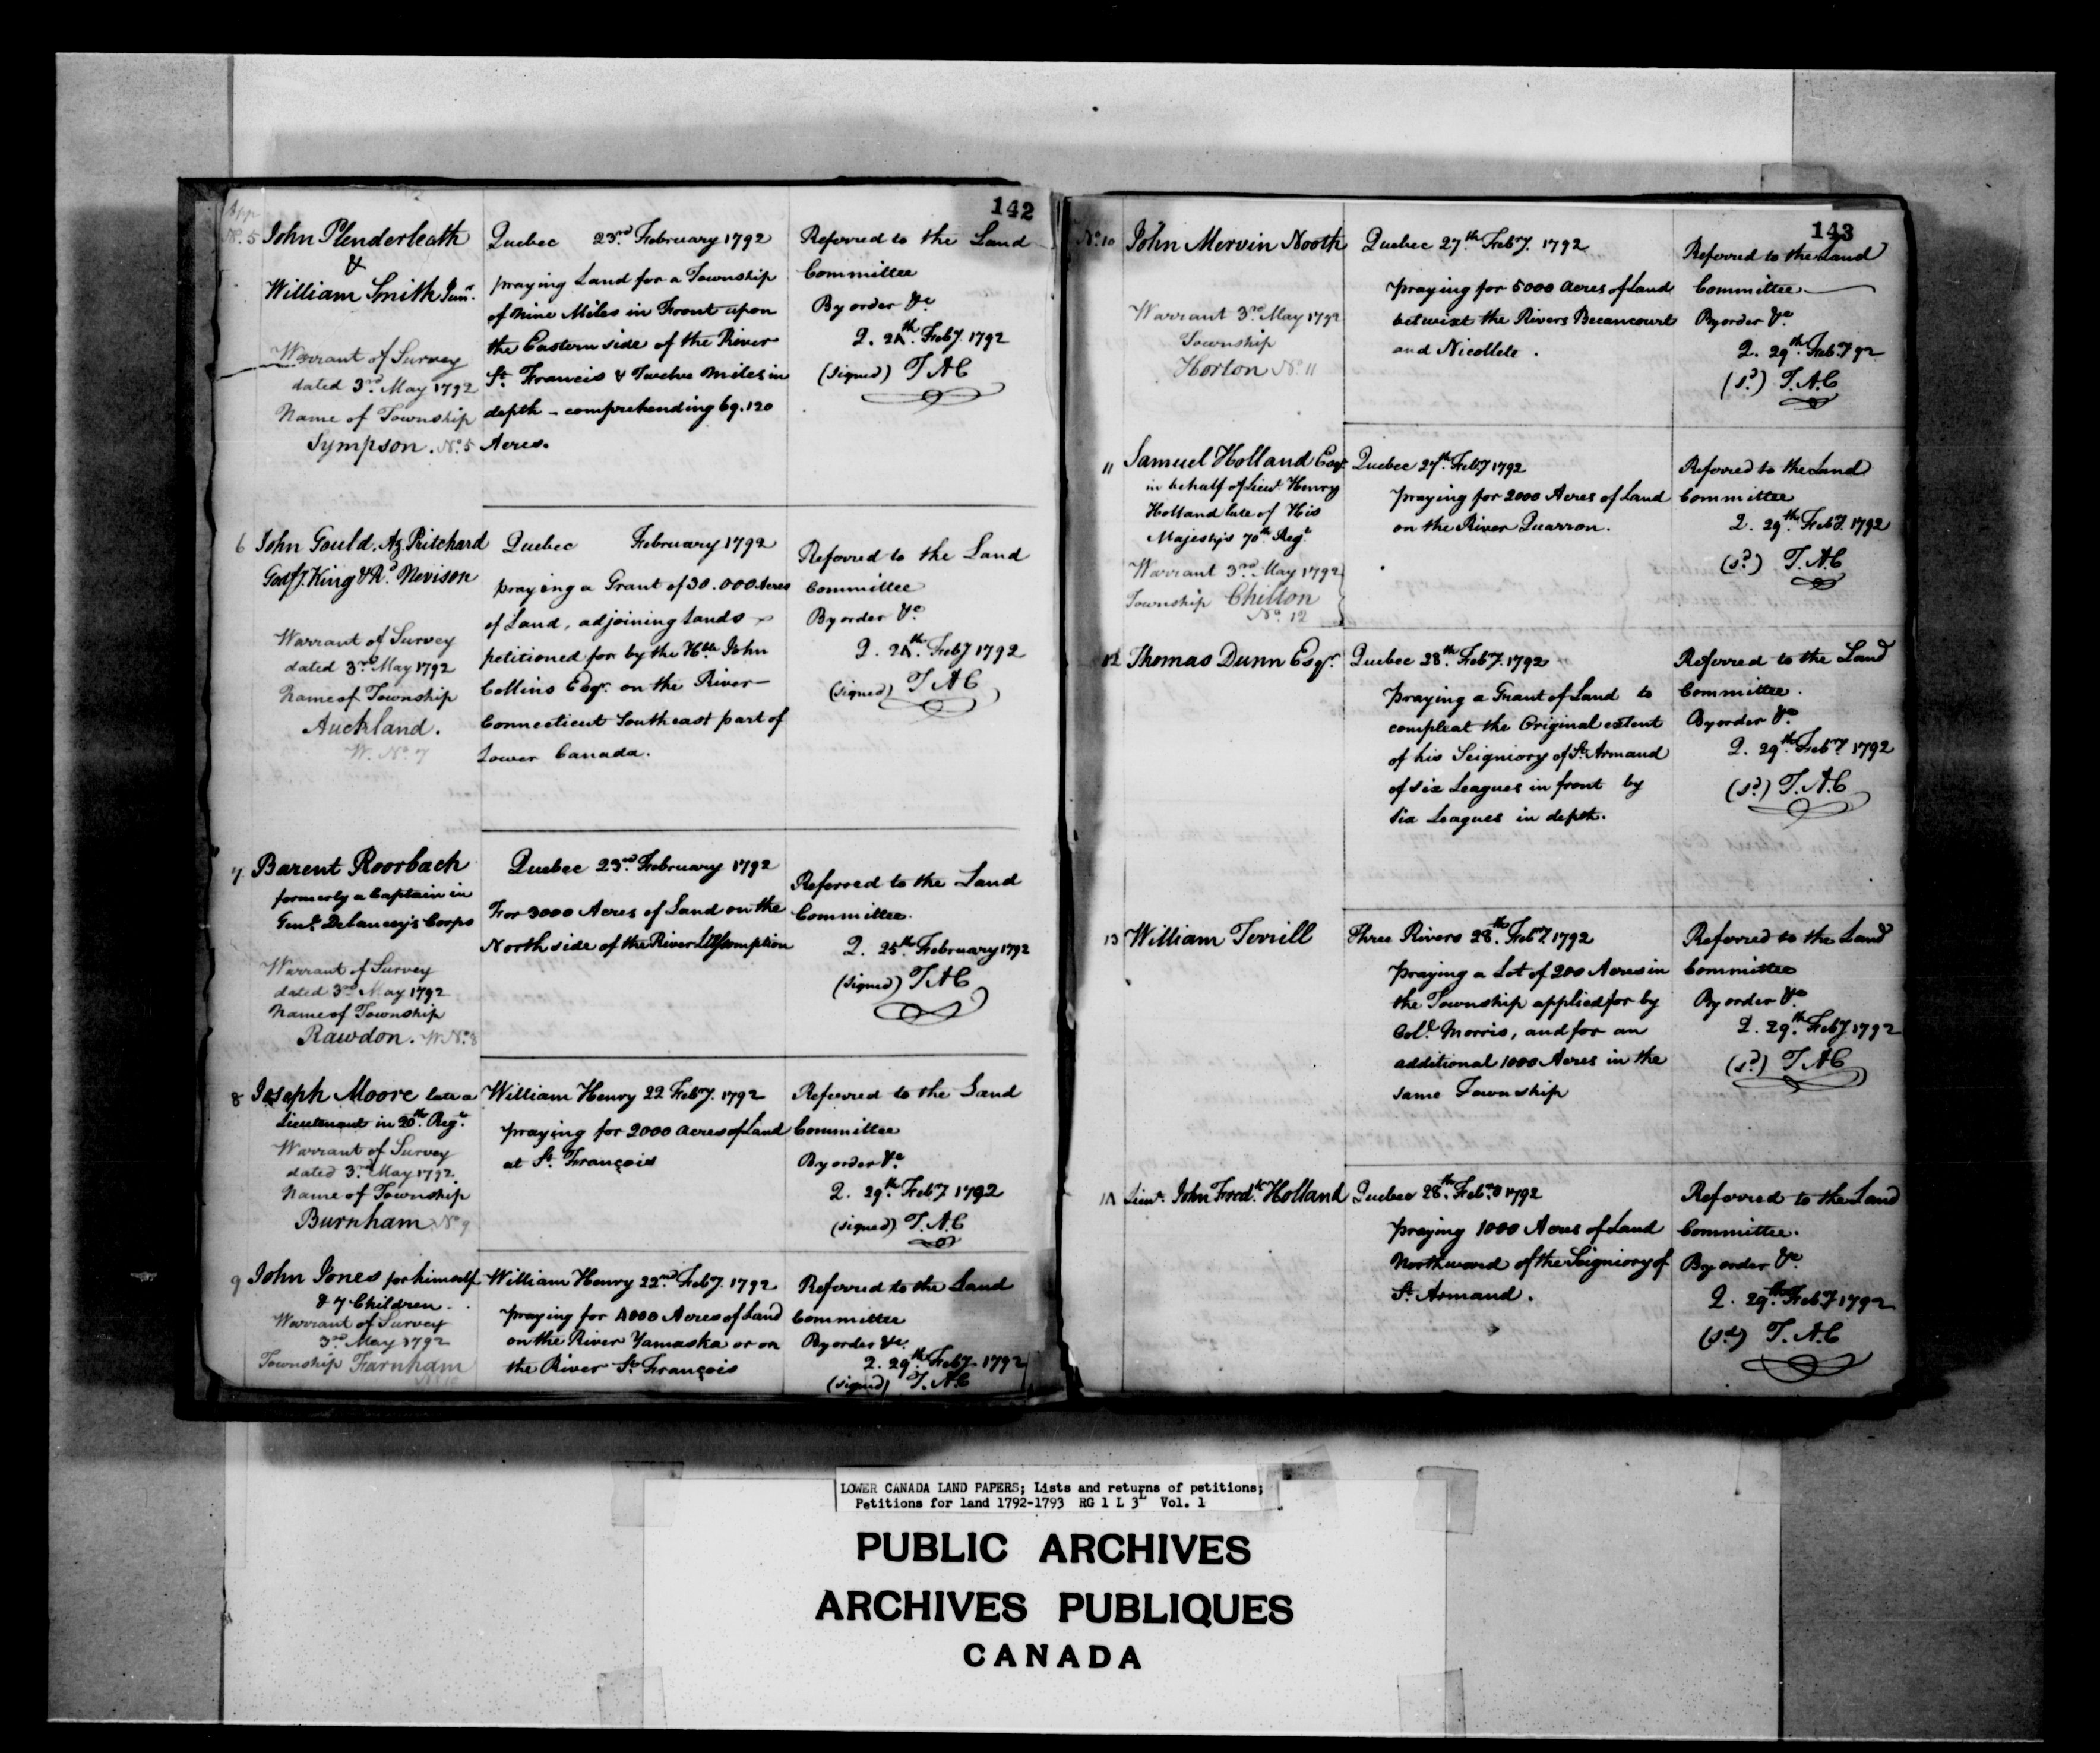 142
App
No. 5 John Plenderleath
&
William Smith Junr.
Warrant of Survey
dated 3rd May 1792
Name of Township
Sympson. No. 5
Quebec 23rd February 1792
praying Land for a Township
of Nine Miles in Front upon
the Eastern side of the River
St. Francis & Twelve Miles in
depth - comprehending 69.120
Acres.
Referred to the Land
Committee
By order &c
Q. 24th Feby 1792
(signed) T A C
6 John Gould. Az. Pritchard
Godfy. King & Rd. Nevison
Warrant of Survey
dated 3rd May 1792
Name of Township
Auckland.
W. No 7
Quebec February 1792
praying a Grant of 30.000 Acres
of Land, adjoining Lands
petitioned for by the Hble John
Collins Esqr. on the River
Connecticut South east part of
Lower Canada.
Referred to the Land
Committee
By order &c
Q. 24th Feby 1792
(signed) T A C
7 Barent Roorbach
formerly a Captain in
Genl. DeLancey's Corps
Warrant of Survey
dated 3rd May 1792
Name of Township
Rawdon. W. No. 8
Quebec 23rd February 1792
For 3000 Acres of Land on the
North side of the River L'Assomption
Referred to the Land
Committee.
Q. 25th February 1792
(signed) T A C
8 Joseph Moore late a
Lieutenant in 20th Regt.
Warrant of Survey
dated 3rd May 1792.
Name of Township
Burnham No 9
William Henry 22 Feby. 1792
praying for 2000 acres of Land
at St. François
Referred to the Land
Committee
By order &c
Q. 29th Feby 1792
(signed) T. A. C
9 John Jones for himself
& 7 Children.
Warrant of Survey
3rd May 1792
Township Farnham
William Henry 22nd Feby. 1792
praying for 4000 Acres of Land
on the River Yamaska or on
the River St. François
Referred to the Land
Committee
By order &c.
Q. 29th Feby 1792
(signed) T. A. C
143
No. 10 John Mervin Nooth
Warrant 3rd May 1792
Township
Horton No. 11
Quebec 27th Feby. 1792
praying for 5000 acres of Land
betwixt the Rivers Becancourt
and Nicollete.
Referred to the Land
Committee
By order &c
Q. 29th Feby 92
(sd) T. A. C
11 Samuel Holland Esqr.
in behalf of Lieut. Henry
Holland late of His
Majesty's 70th Regt
Warrant 3rd May 1792
Township Chilton
No. 12
Quebec 27th Feby 1792
praying for 2000 Acres of Land
on the River Quarron.
Referred to the Land
Committee
Q. 29th Feby. 1792
(sd) T. A. C
12 Thomas Dunn Esqr.
Quebec 28th Feby. 1792
praying a Grant of Land to
compleat the Original extent
of his Seigniory of St. Armand
of six Leagues in front by
six Leagues in depth.
Referred to the Land
Committee.
By order &c
Q. 29th Feby 1792
(sd) T. A. C
13 William Terrill
Three Rivers 28th Feby 1792
praying a Lot of 200 Acres in
the Township applied for by
Coll. Morris, and for an
additional 1000 Acres in the
same Township
Referred to the Land
Committee
By order &c
Q. 29th Feby 1792
(sd) T. A. C
14 Lieut. John Fredk. Holland
Quebec 28th Feby 1792
praying 1000 Acres of Land
Northward of the Seigniory of
St. Armand.
Referred to the Land
Committee.
By order &c
Q. 29th Feby 1792
(sd) T. A. C
LOWER CANADA LAND PAPERS; Lists and returns of petitions;
Petitions for land 1792-1793 RG 1 L 3L Vol. 1
PUBLIC ARCHIVES
ARCHIVES PUBLIQUES
CANADA